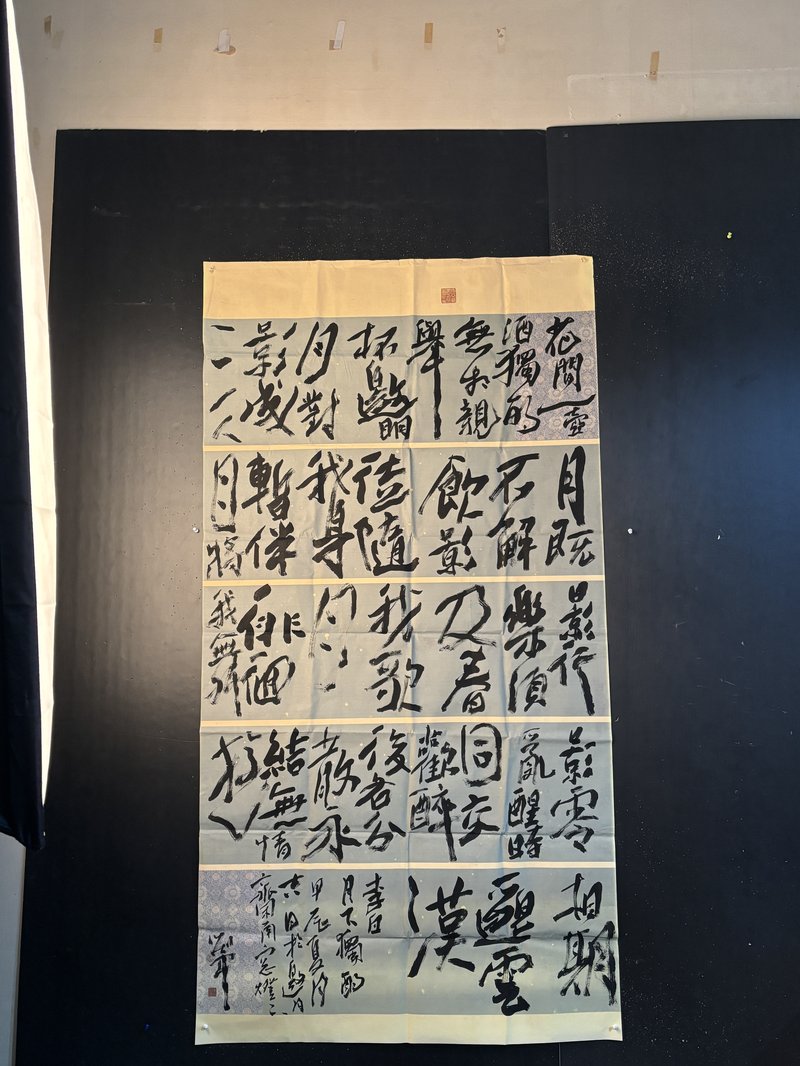 花間一壺
酒獨酌
無相親
舉
杯邀明
月對
影成
三人
月既
不解
飲影
徒隨
我身
暫伴
月將
影行
樂須
及春
我歌
月
徘徊
我舞
影零
亂醒時
同交
歡醉
後各分
散永
結無情
遊
相期
邈雲
漢
李白
月下獨酌
甲辰夏月
吉日於邀月
齋南窗燈下